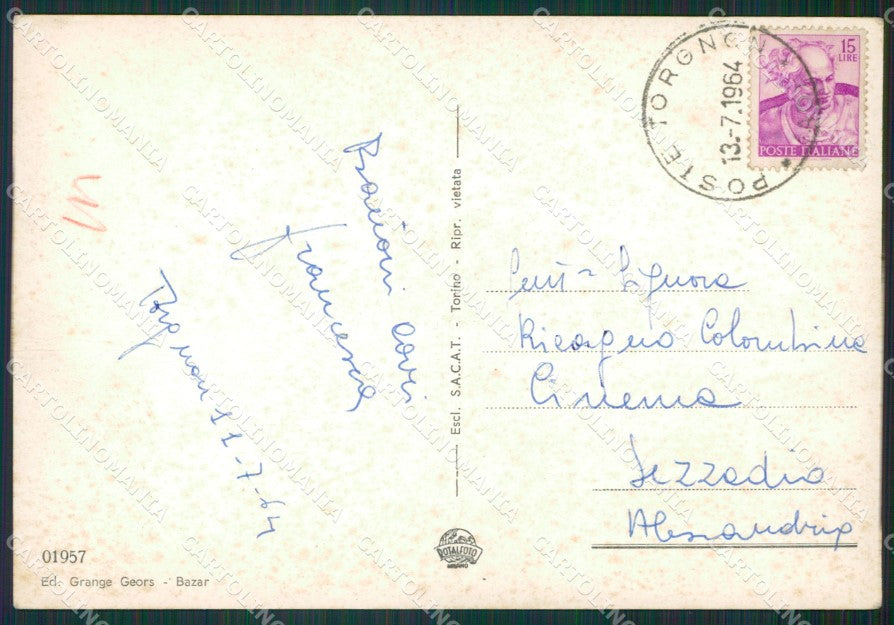 POSTE TORGNON
13.-7.1964
15
LIRE
POSTE ITALIANE
Bacioni cari
Francesca
Torgnon 11-7-64
Gent. Signora
Colombina
Cinema
Sezzadio
Alessandria
Escl. S.A.C.A.T. - Torino - Ripr. vietata
ROTALFOTO
MILANO
01957
Ed. Grange Geors - Bazar
CARTOLINOMANIA